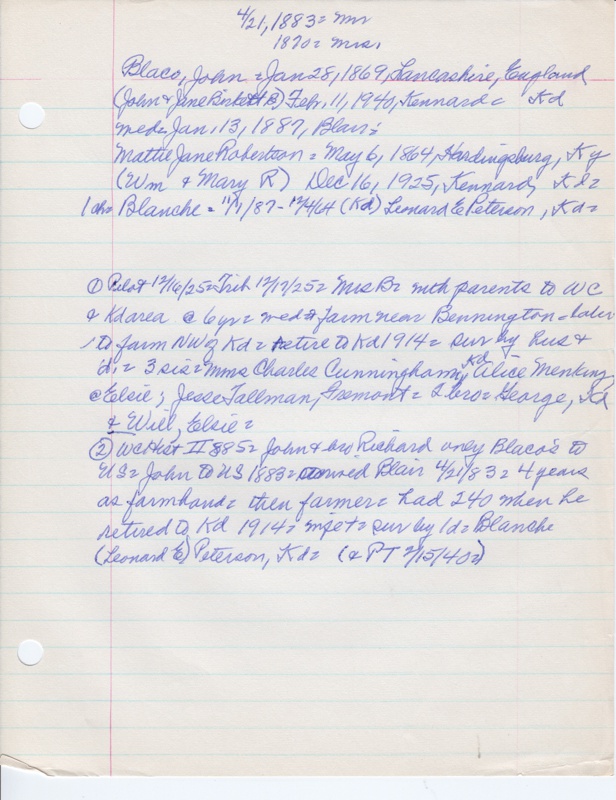 4/21, 1883 = Mr
1870 = Mrs.
Blaco, John = Jan 28, 1869, Lancashire, England
(John & Jane Birkett) Feb. 11, 1940, Kennard = Kd
med = Jan. 13, 1887, Blair =
Mattie Jane Robertson = May 6, 1864, Hardingsburg, Ky
(Wm & Mary R) Dec 16, 1925, Kennard, Kd =
1 ch = Blanche = 11/1/87 - 12/4/64 (Kd) Leonard E Peterson, Kd =
① Pilot 12/16/25 = Trib 12/17/25 = Mrs B = with parents to WC
& Kd area @ 6 yr = med = farm near Bennington = later
to farm NW of Kd = retire to Kd 1914 = sur by hus &
1 d. = 3 sis = Mmes Charles Cunningham, Kd, Alice Menking
@ Elsie; Jesse Tallman, Fremont = 2 bro = George, Kd
& Will, Elsie =
② WC Hist II 885 = John & bro Richard only Blaco's to
US = John to US 1883 = arrived Blair 4/21/83 = 4 years
as farmhand = then farmer = had 240 when he
retired to Kd 1914 = = sur by 1d = Blanche
(Leonard E) Peterson, Kd = (& PT 2/15/40 =)